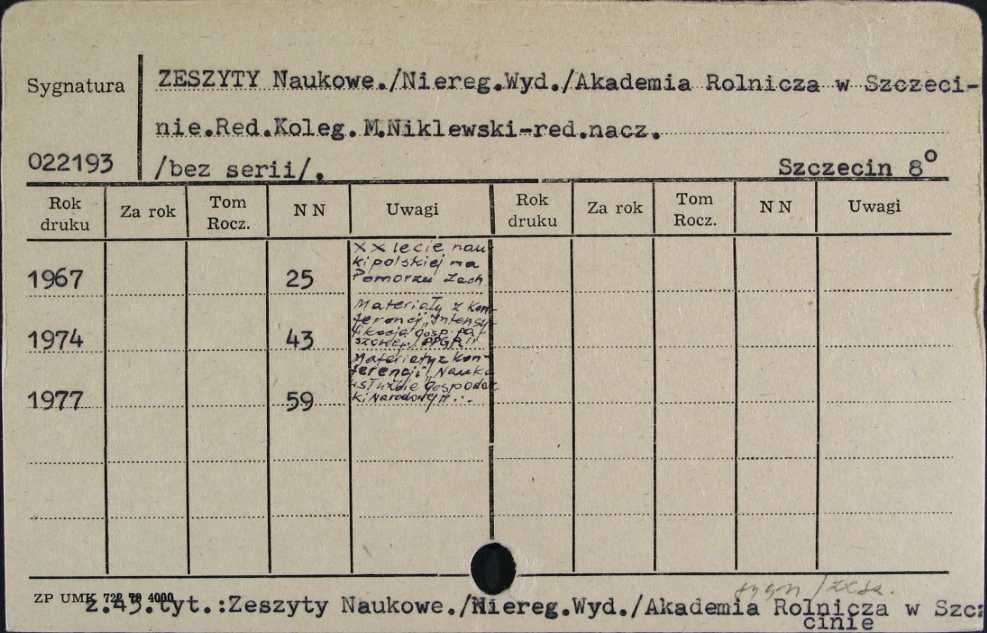 Sygnatura
ZESZYTY Naukowe./Niereg.Wyd./Akademia Rolnicza w Szczeci-
nie.Red.Koleg. M.Niklewski-red.nacz.
022193 /bez serii/. Szczecin 8°
Rok druku Za rok Tom Rocz. N N Uwagi Rok druku Za rok Tom Rocz. N N Uwagi
XX lecie nau-
ki polskiej na
1967 25 Pomorzu Zach
Materiały z kon-
ferencji "Intensy-
fikacja gosp. pa
1974 43 szowej PPGR"
Materiały z kon-
ferencji "Nauka
w służbie Gospodar
1977 59 ki Narodowej"...
ZP UMK 722 78 4000
z.43.tyt.:Zeszyty Naukowe./Niereg.Wyd./Akademia Rolnicza w Szcze
cinie